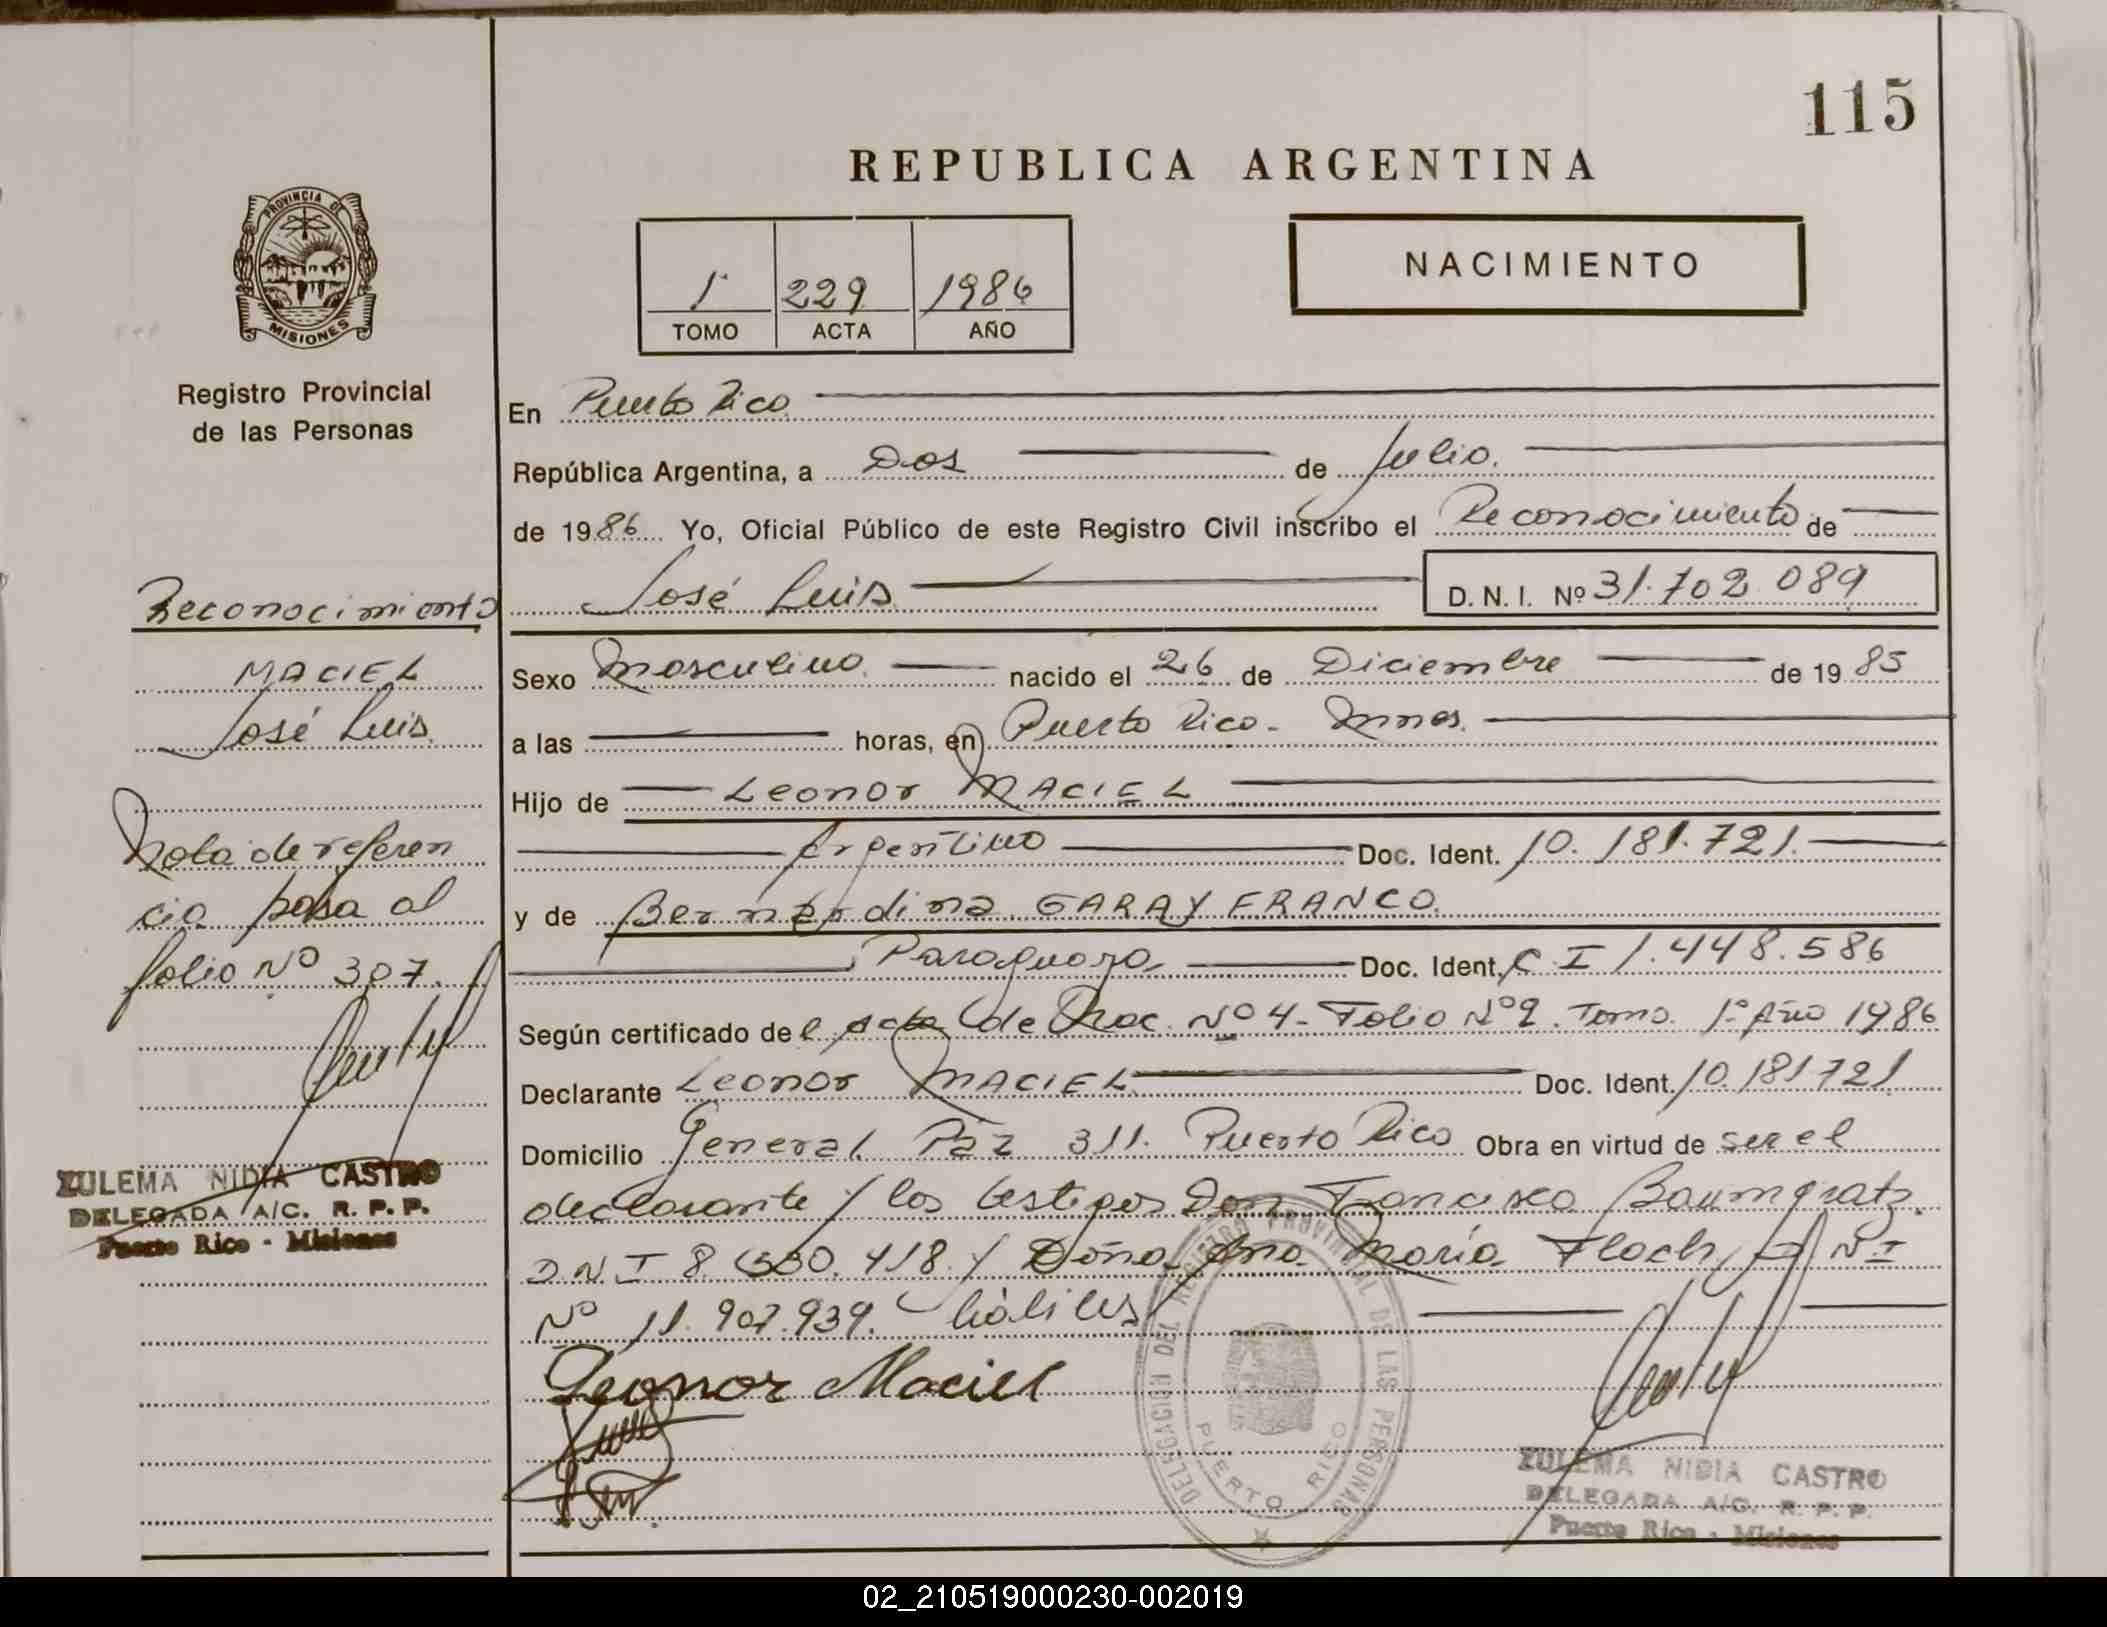 115
REPUBLICA ARGENTINA
PROVINCIA DE
MISIONES
1º 229 1986
TOMO ACTA AÑO
NACIMIENTO
Registro Provincial
de las Personas
En Puerto Rico
República Argentina, a Dos de Julio.
de 1986 Yo, Oficial Público de este Registro Civil inscribo el Reconocimiento de
José Luis D. N. I. Nº 31.702.089
Reconocimiento
MACIEL
José Luis
Nota de referen
cia pasa al
folio Nº 307.
ZULEMA NIDIA CASTRO
DELEGADA A/C. R. P. P.
Puerto Rico - Misiones
Sexo Masculino nacido el 26 de Diciembre de 1985
a las horas, en Puerto Rico - Mnes.
Hijo de Leonor MACIEL
Argentino Doc. Ident. 10.181.721.
y de Bernardina GARAY FRANCO
Paraguaya Doc. Ident. C I 1.448.586
Según certificado del Acta de Nº 4 - Folio Nº 2. Tomo 1º Año 1986
Declarante Leonor MACIEL Doc. Ident. 10.181721
Domicilio General Paz 311. Puerto Rico Obra en virtud de ser el
declarante y los testigos Don Francisco Baumgratz.
D N I 8. 418 y Doña Ana María Floch, D N I
Nº 11.907.939. hábiles
Leonor Maciel
DELEGACION DEL REGISTRO PROVINCIAL DE LAS PERSONAS
PUERTO RICO
ZULEMA NIDIA CASTRO
DELEGADA A/C. R. P. P.
Puerto Rico - Misiones
02_210519000230-002019